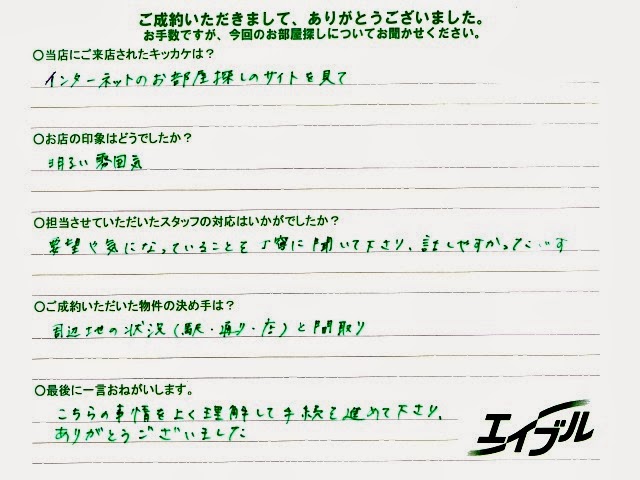 ご成約いただきまして、ありがとうございました。
お手数ですが、今回のお部屋探しについてお聞かせください。
○当店にご来店されたキッカケは?
インターネットのお部屋探しのサイトを見て
○お店の印象はどうでしたか?
明るい雰囲気
○担当させていただいたスタッフの対応はいかがでしたか?
要望や気になっていることを丁寧に聞いて下さり、話しやすかったです
○ご成約いただいた物件の決め手は?
周辺地の状況(駅・通り・店)と間取り
○最後に一言おねがいします。
こちらの事情をよく理解して手続を進めて下さり、
ありがとうございました
エイブル